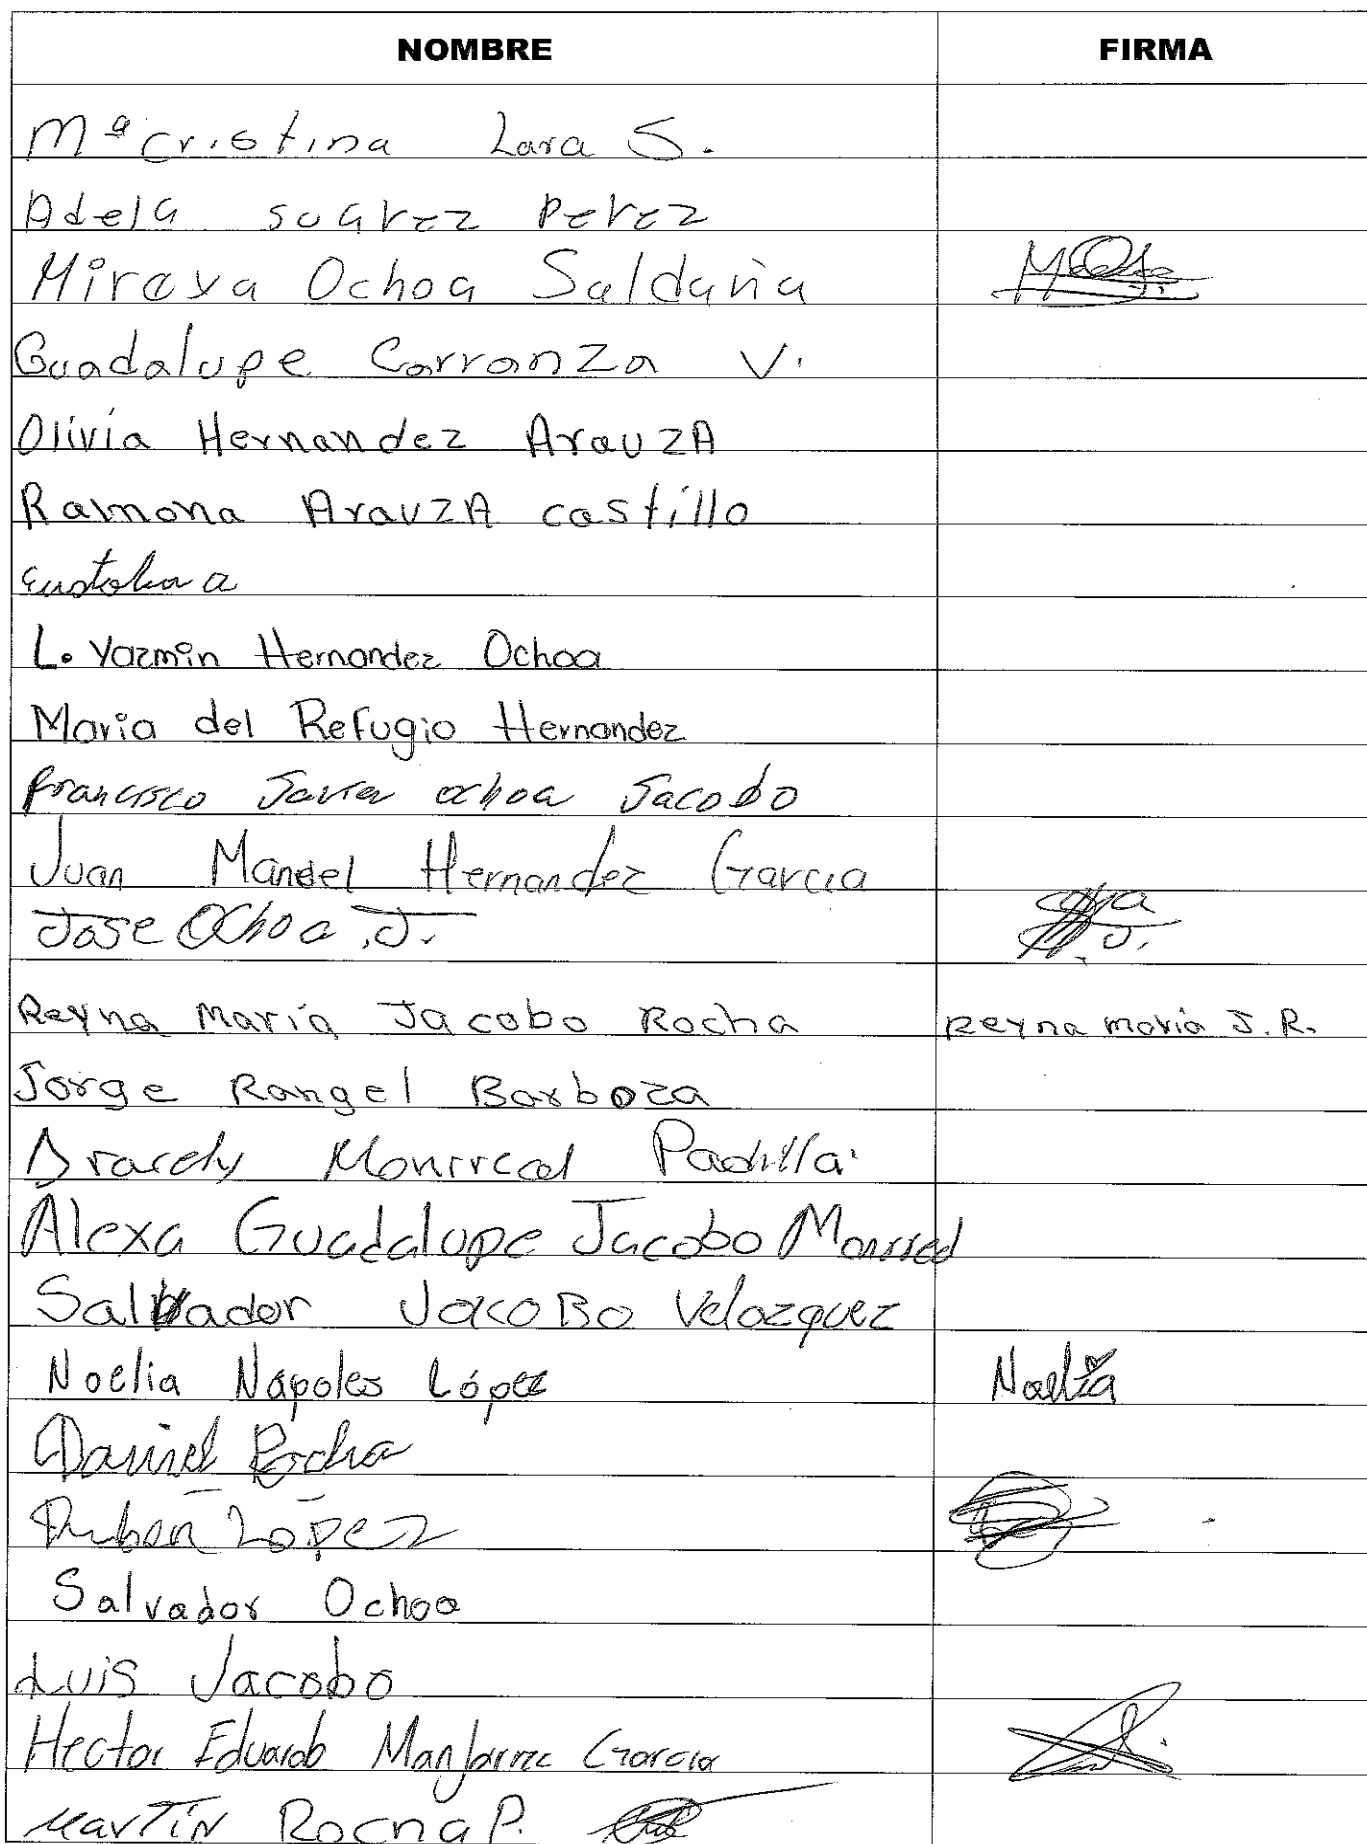 NOMBRE FIRMA
Mª Cristina Lara S.
Adela suarez Perez
Mireya Ochoa Saldaña
Guadalupe Carranza V.
Olivia Hernandez ArauzA
Ramona ArauzA castillo
Eustolia a
L. Yazmin Hernandez Ochoa
Maria del Refugio Hernandez
francisco Javier ochoa Jacobo
Juan Manuel Hernandez Garcia
Jose Ochoa .J.
Reyna María Jacobo Rocha Reyna maria J.R.
Jorge Rangel Barboza
Aracely Monrreal Padilla
Alexa Guadalupe Jacobo Monrreal
Salvador JacoBo Velazquez
Noelia Nápoles López Noelia
Daniel Rocha
Ruben López
Salvador Ochoa
Luis Jacobo
Hector Eduardo Manjarrez Garcia
MarTíN Rocha P.